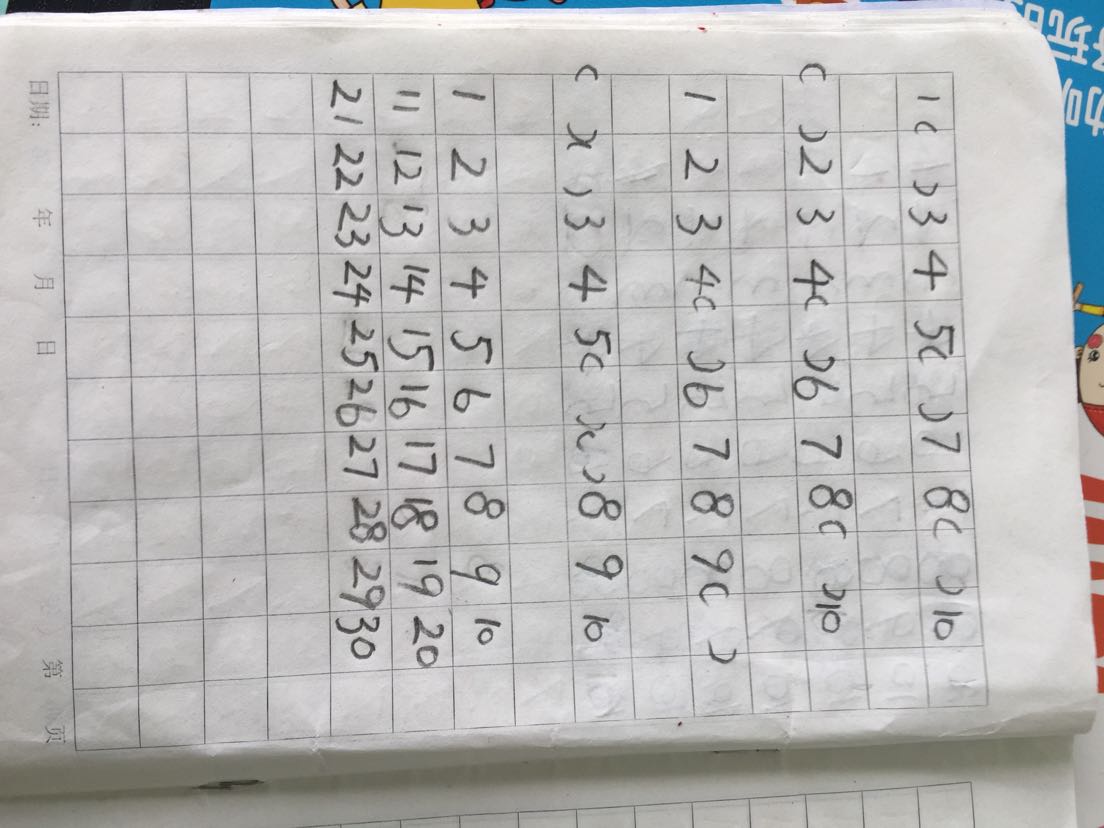 1 ( ) 3 4 5 ( ) 7 8 ( ) 10
( ) 2 3 4 ( ) 6 7 8 ( ) 10
1 2 3 4 ( ) 6 7 8 9 ( )
( ) ( ) 3 4 5 ( ) ( ) 8 9 10
1 2 3 4 5 6 7 8 9 10
11 12 13 14 15 16 17 18 19 20
21 22 23 24 25 26 27 28 29 30
日期: 年 月 日 第 页